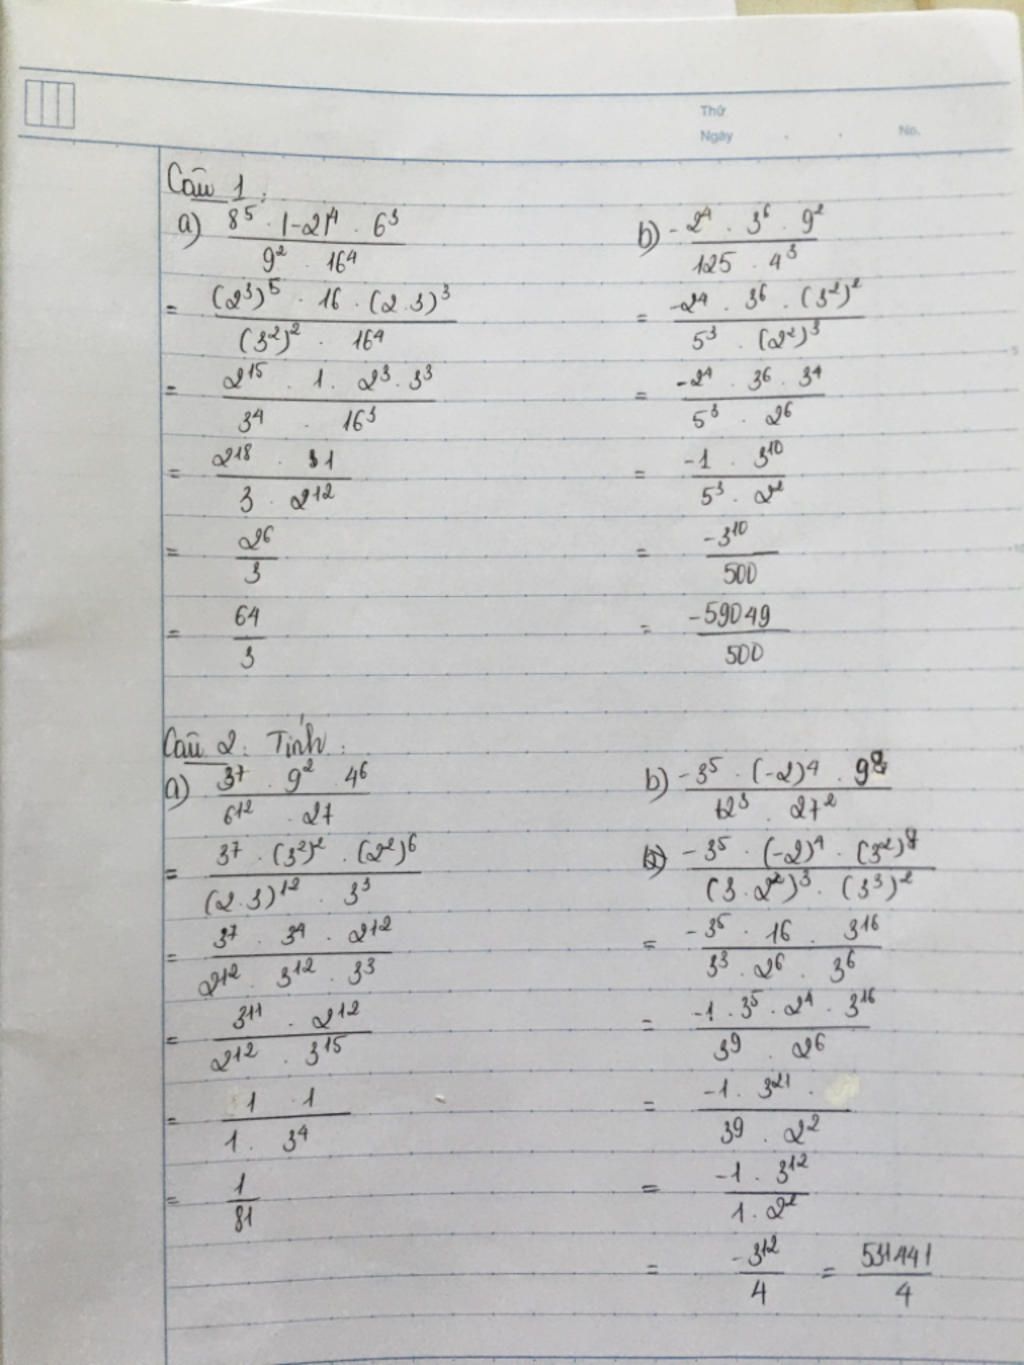 Thứ
Ngày . . No.
Câu 1:
a) 8⁵ · |-2|⁴ · 6³ / 9² · 16⁴
= (2³)⁵ · 16 · (2.3)³ / (3²)² · 16⁴
= 2¹⁵ · 1 · 2³ · 3³ / 3⁴ · 16³
= 2¹⁸ · 1 / 3 · 2¹²
= 2⁶ / 3
= 64 / 3
b) - 2⁴ · 3⁶ · 9² / 125 · 4³
= -2⁴ · 3⁶ · (3²)² / 5³ · (2²)³
= -2⁴ · 3⁶ · 3⁴ / 5³ · 2⁶
= -1 · 3¹⁰ / 5³ · 2²
= -3¹⁰ / 500
= -59049 / 500
Câu 2: Tính:
a) 3⁷ · 9² · 4⁶ / 6¹² · 27
= 3⁷ · (3²)² · (2²)⁶ / (2.3)¹² · 3³
= 3⁷ · 3⁴ · 2¹² / 2¹² · 3¹² · 3³
= 3¹¹ · 2¹² / 2¹² · 3¹⁵
= 1 · 1 / 1 · 3⁴
= 1 / 81
b) -3⁵ · (-2)⁴ · 9⁸ / 12³ · 27²
-3⁵ · (-2)⁴ · (3²)⁸ / (3.2²)³ · (3³)²
= -3⁵ · 16 · 3¹⁶ / 3³ · 2⁶ · 3⁶
= -1 · 3⁵ · 2⁴ · 3¹⁶ / 3⁹ · 2⁶
= -1 · 3²¹ · / 3⁹ · 2²
= -1 · 3¹² / 1 · 2²
= -3¹² / 4 = 531441 / 4